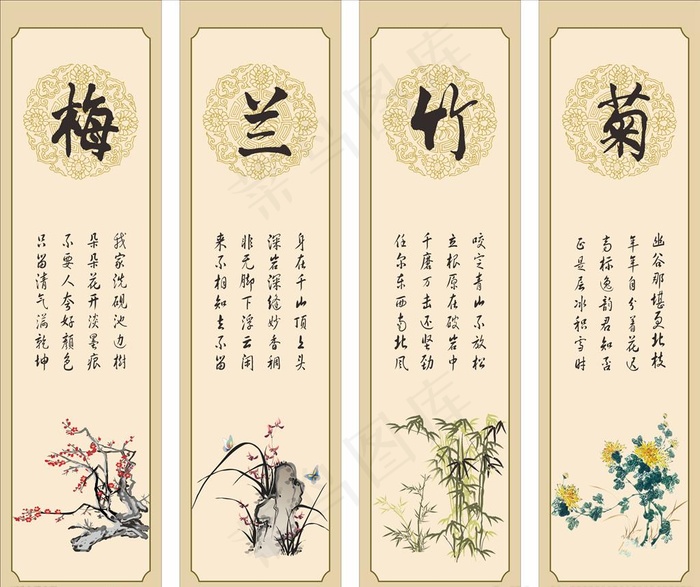 梅
我家洗砚池边树
朵朵花开淡墨痕
不要人夸好颜色
只留清气满乾坤
兰
身在千山顶上头
深岩深缝妙香稠
非无脚下浮云闹
来不相知去不留
竹
咬定青山不放松
立根原在破岩中
千磨万击还坚劲
任尔东西南北风
菊
幽谷那堪更北枝
年年自分着花迟
高标逸韵君知否
正是层冰积雪时